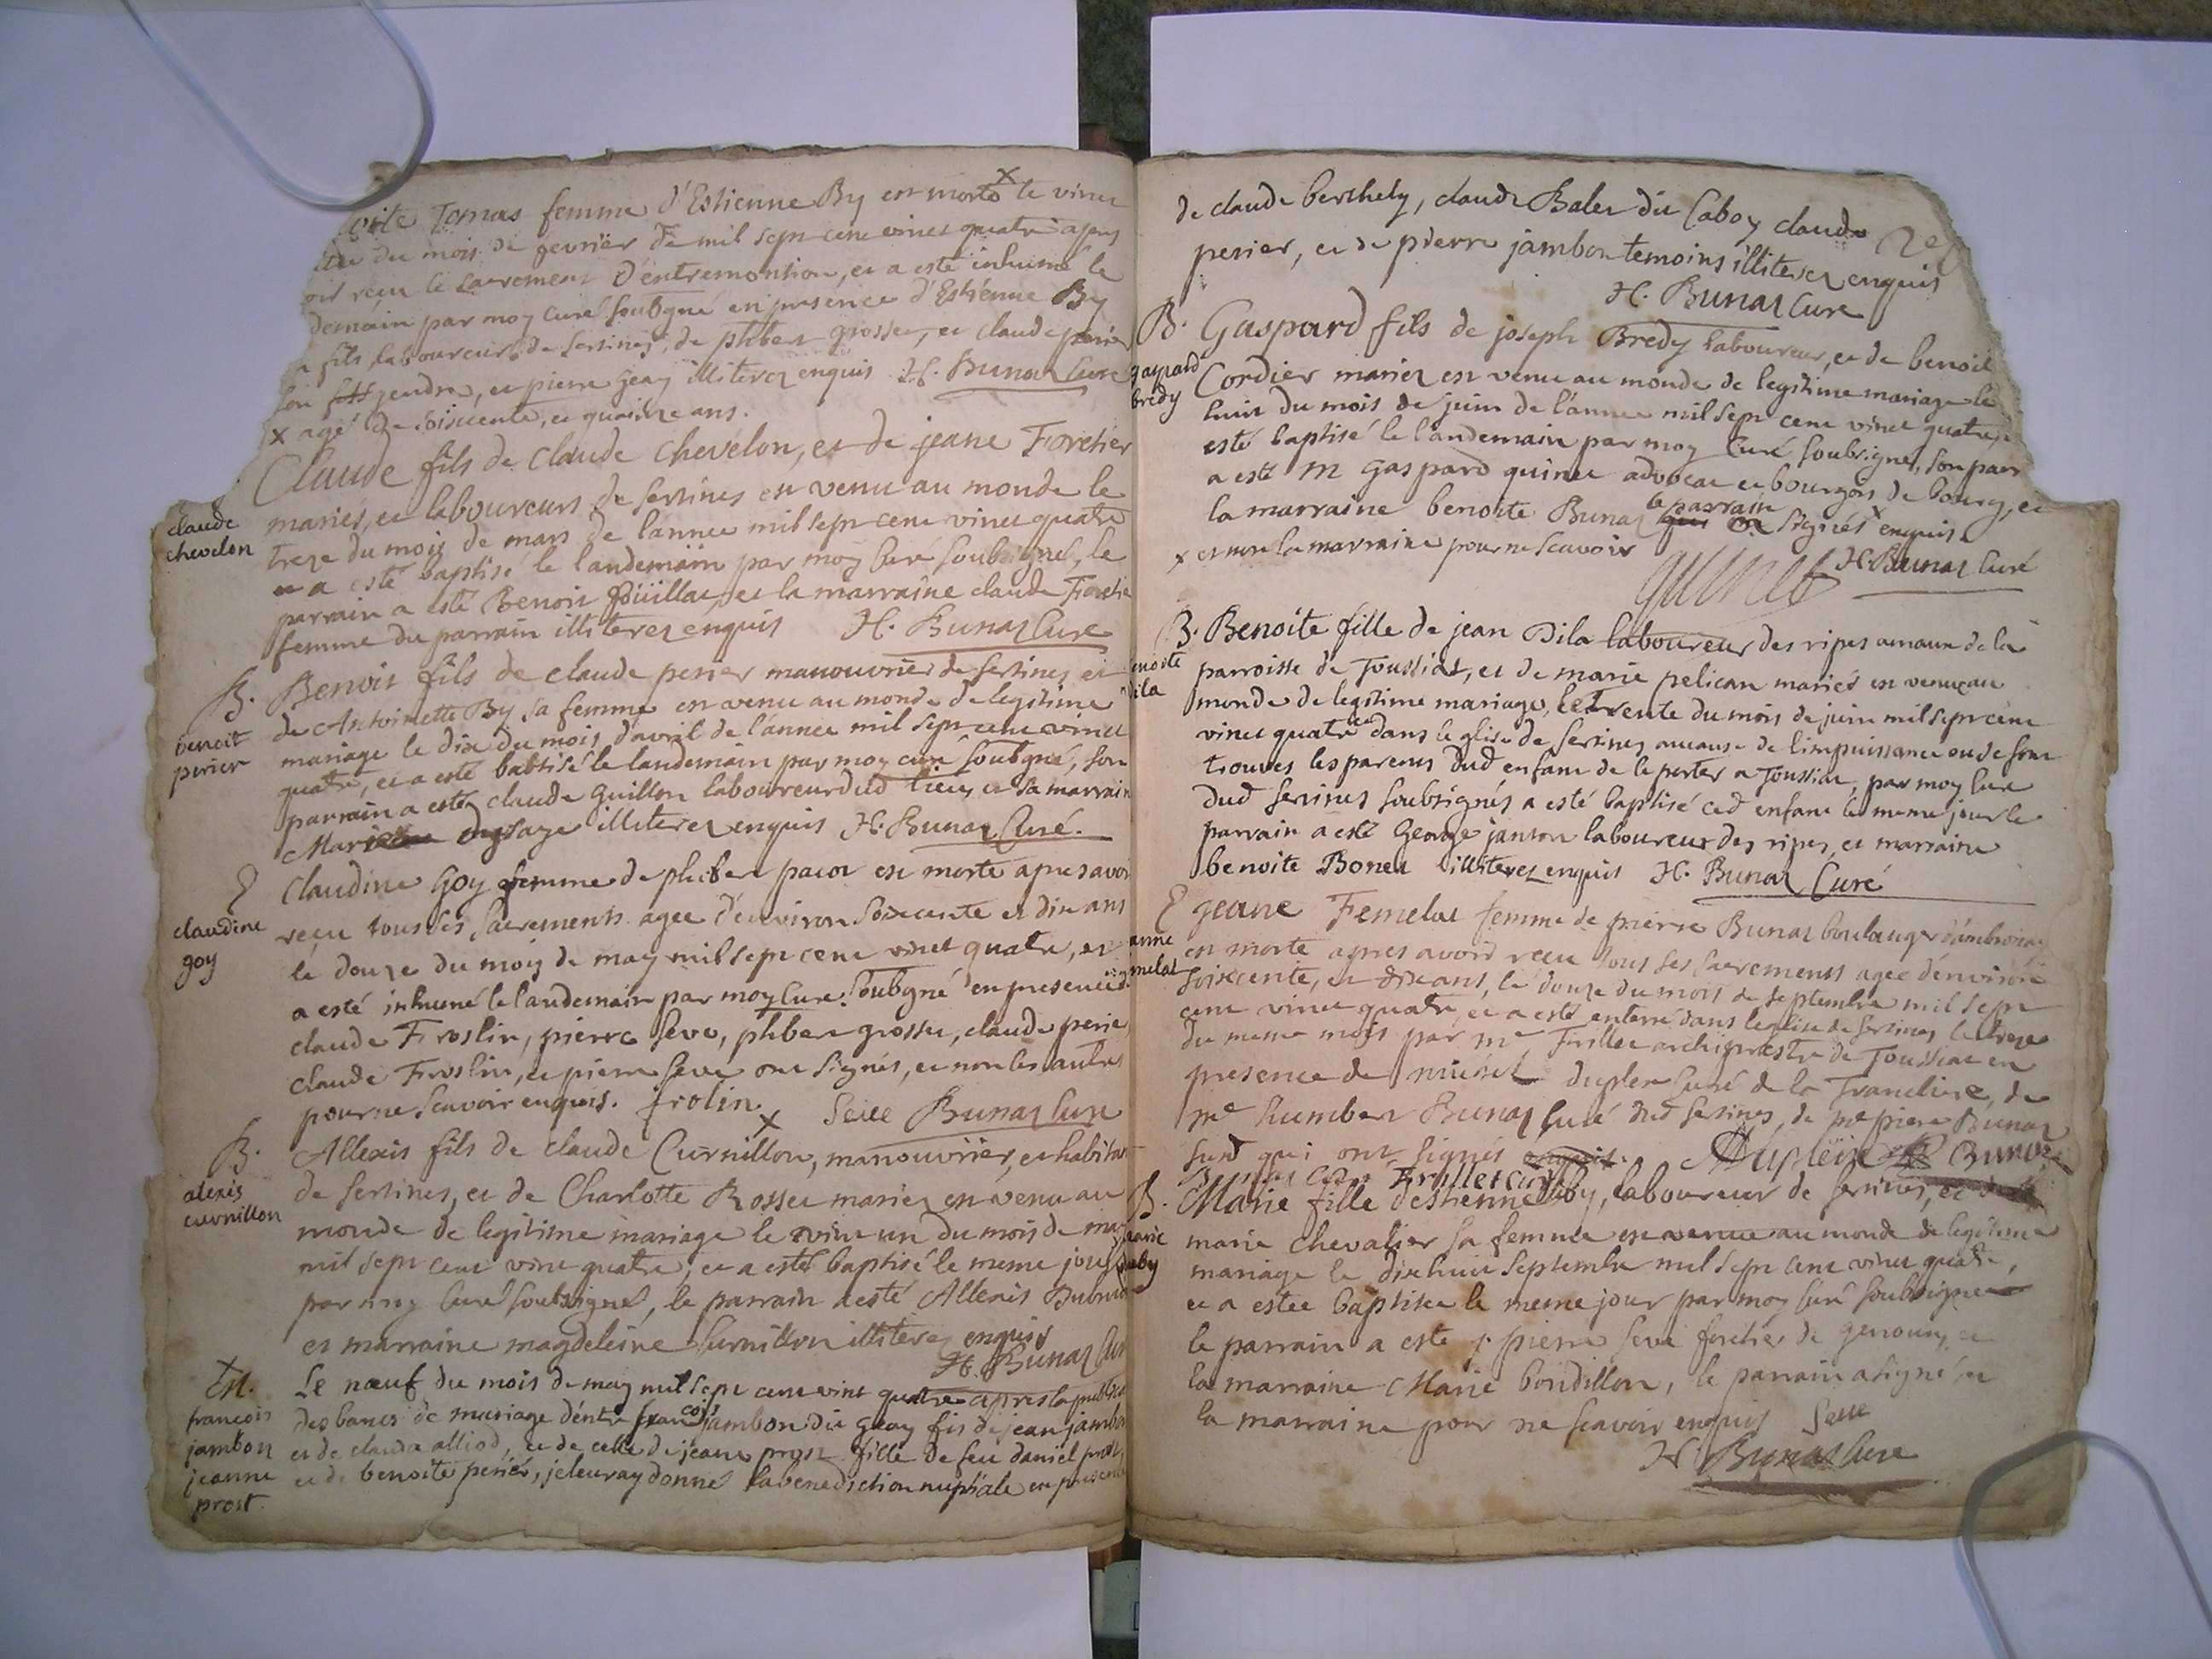 oite Tomas femme d'Estienne By est morte x le vinct
du mois de fevrier de mil sept cent vinct quatre apres
oir reçu le sacrement d'extremontion, et a esté inhumé le
demain par moy curé soubgné en presence d'Estienne By
fils laboureurs de sersines, de phbert grosset, et claude perier
son gendre, et pierre jean illiterez enquis H. Bunaz Curé
x agé de soiscente, et quainze ans.
Claude fils de claude chevelon, et de jeane Foretier
mariés, et laboureurs de sersines est venu au monde le
treze du mois de mars de l'annee mil sept cent vinct quatre
et a esté baptisé le landemain par moy curé soubsigné, le
parrain a esté Benoit goüillat, et la marraine claude Foretie
femme du parrain illiterez enquis H. Bunaz Cure
claude
chevelon
B. Benoit fils de claude perier manouvrier de sersines et
de Antoinette By sa femme est venu au monde de legitime
mariage le dix du mois d'avril de l'annee mil sept cent vinct
quatre, et a esté babtisé le landemain par moy curé soubgné, son
parrain a esté claude Guillon laboureur dud lieu, et sa marrain
Marie illiterez enquis H. Bunaz Curé.
benoit
perier
E Claudine Goy femme de phibert pacot est morte apres avoir
reçu tous ses sacrements agee d'environ soixcente et dix ans
le douze du mois de may mil sept cent vinct quatre, et
a esté inhumé le landemain par moy Cure soubgné en presence d.
claude Froslin, pierre seve, phbert grosset, claude perie
claude Froslin, et pierre seve ont signés, et non les autres
pour ne scavoir enquis. frolin x Seve Bunaz Cure
claudine
goy
B. Allexis fils de claude Curnillon, manouvrier, et habitant
de sersines, et de Charlotte Rosset mariez est venu au
monde de legitime mariage le vint un du mois de may
mil sept cent vint quatre, et a esté baptisé le meme jour
par moy Curé soubsigné, le parrain a esté Allexis Dubru
et marraine magdeleine Curnillon illiterez enquis
H. Bunaz Cur
alexis
curnillon
x
Le neuf du mois de may mil sept cent vint quatre apres la publica
des bancs de mariage d'entre françois jambon dit gray fis de jean jambon
et de claudа alliod, et de celle de jeane prost fille de feu daniel prost,
et de benoite perier, je leur ay donné la benediction nuptiale en presence
françois
jambon
jeanne
prost.
de claude berthely, claude Balet dit Caboy claude
perier, et de pierre jambon temoins illiterez enquis
H. Bunaz Cure
B. Gaspard fils de joseph Bredy laboureur, et de benoit
Cordier mariez est venu au monde de legitime mariage le
huit du mois de juin de l'annee mil sept cent vinct quatre,
esté baptisé le landemain par moy Curé soubsigné, son parr
a esté m Gaspard quinet advocat et bourgois de bourg, et
la marraine benoite Bunaz le parrain signés x enquis
x et non la marraine pour ne scavoir
quinet H. Bunaz Curé
gaspard
bredy
B. Benoite fille de jean Dila laboureur des ripes amaux de la
parroisse de Toussiat, et de marie pelican mariés est venu au
monde de legitime mariage, le trente du mois de juin mil sept cent
vinct quatre dans leglise de sersines au cause de l'impuissance ou se sont
trouvés les parents dud enfant de le porter a Toussiat, par moy Cure
dud sersines soubsignés a esté baptisé ced enfant le meme jour le
parrain a esté George janton laboureur des ripes, et marraine
benoite Bonet illiterez enquis H. Bunaz Curé
enoite
Dila
E jeane Femelat femme de pierre Bunaz boulanger d'ambronay
est morte apres avoir reçu tous ses sacrements agee d'environ
soixcente, et dix ans, le douze du mois de septembre mil sept
cent vinct quatre, et a esté enterré dans leglise de sersines le treze
du meme mois par me Frillet archiprestre de Toussiat en
presence de duplex curé de la Trancliere, de
me humbert Bunaz curé dud sersines, de pierre Bunaz
susd qui ont signés
Frillet curé
anne
emelat
B. Marie fille d'estienne By, laboureur de sersines, et de
marie chevalier sa femme est venue au monde de legitime
mariage le dixhuit septembre mil sept cent vinct quatre,
et a estee baptisee le meme jour par moy curé soubsigne
le parrain a este pierre seve foretier de genoux, et
la marraine Marie bondillon, le parrain a signé, et
la marraine pour ne scavoir enquis Seve
H Bunaz Cure
marie